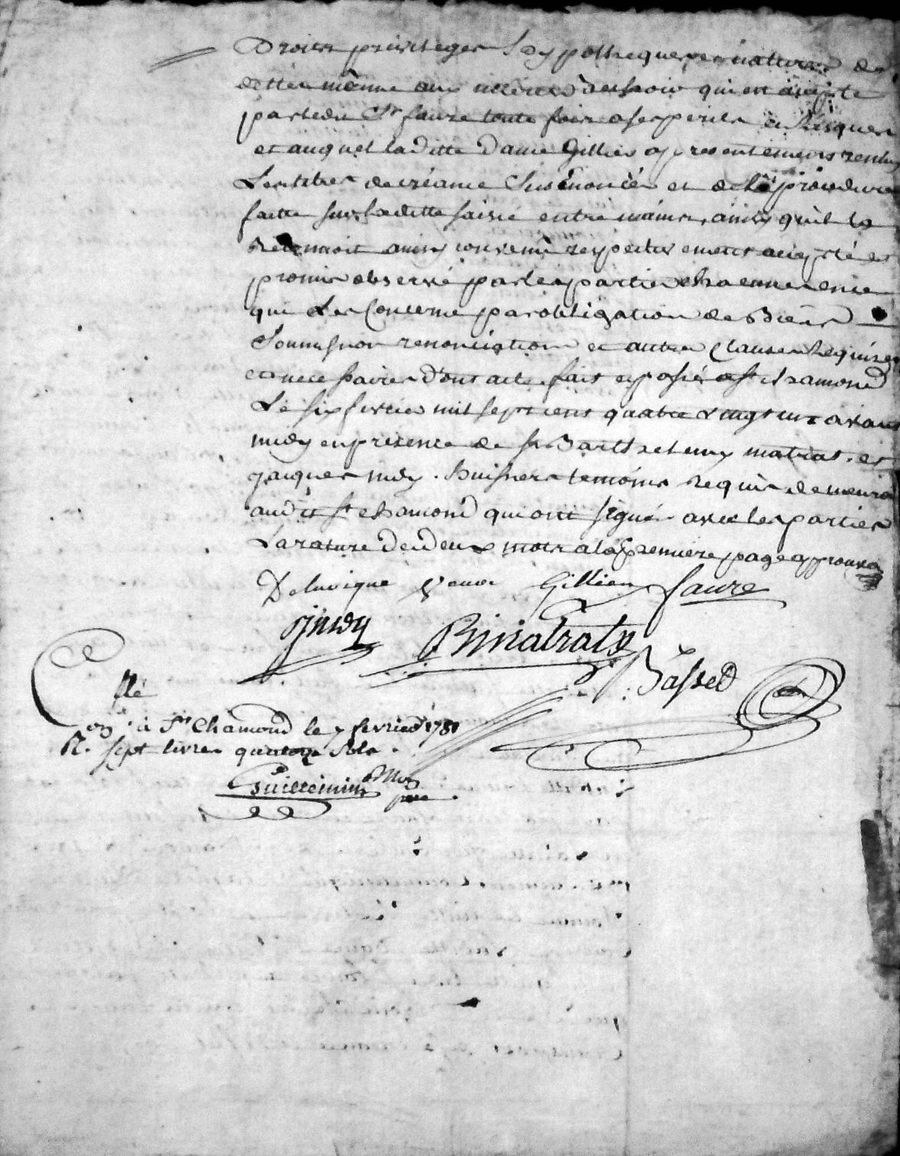 Droits privileges hypotheques et nature de
dette même aux interets d'ycelle qui est accepté
par ledit Sr faure toute fois a ses perils et Risques
et auquel laditte Dame Gillier a presentement rendu
Les titres de créance Susénoncée et de la procedure
faitte sur la ditte saisie entre mains, ainsy qu'il le
Reconnoit ainsy convenu respectivement accepté et
promis observé par les parties chacunne en ce
que Les Concerne par obligation de Biens
Soumission renonciation et autres Clauses Requises
et necessaires Dont acte fait et passé a St Chamond
Le six fevrier mil sept cens quatre vingt un avant
midy en presence de Sr Barthelemy matrat et
jacques judy huissiers temoins Requis demeurant
audit St chamond qui ont signé avec les parties
La rature de deux mots a la premiere page approuvée
Delavigne veuve Gillier faure
Jjudy Bmatrat
Basset
Cllé
à St Chamond le 7 fevrier 1781
R. sept livres quatorze sols
Guillemin